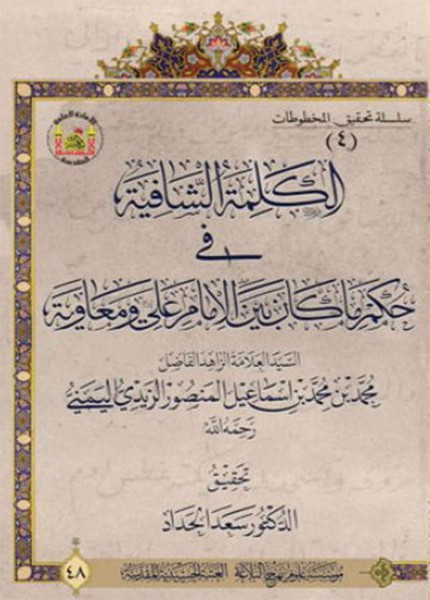 سلسلة تحقيق المخطوطات
(٤)
الأمانة العامة
الكلمة الشافية
في
حكم ما كان بين الإمام علي ومعاوية
السيد العلامة الزاهد الفاضل
محمد بن محمد بن إسماعيل المنصور الزيدي اليمني
رحمه الله
تحقيق
الدكتور سعد الحداد
مؤسسة علوم نهج البلاغة العتبة الحسينية المقدسة
٤٨